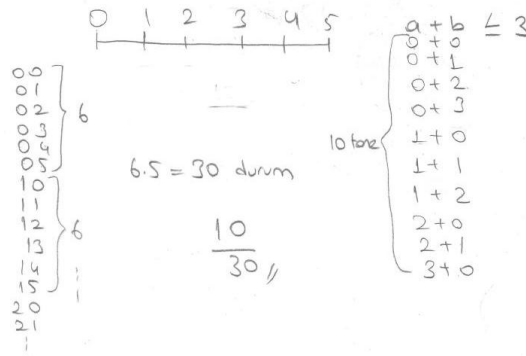 0 1 2 3 4 5
00
01
02
03
04
05
6
10
11
12
13
14
15
6
20
21
6.5 = 30 durum
10
30 //
a + b ≤ 3
0 + 0
0 + 1
0 + 2
0 + 3
1 + 0
1 + 1
1 + 2
2 + 0
2 + 1
3 + 0
10 tane